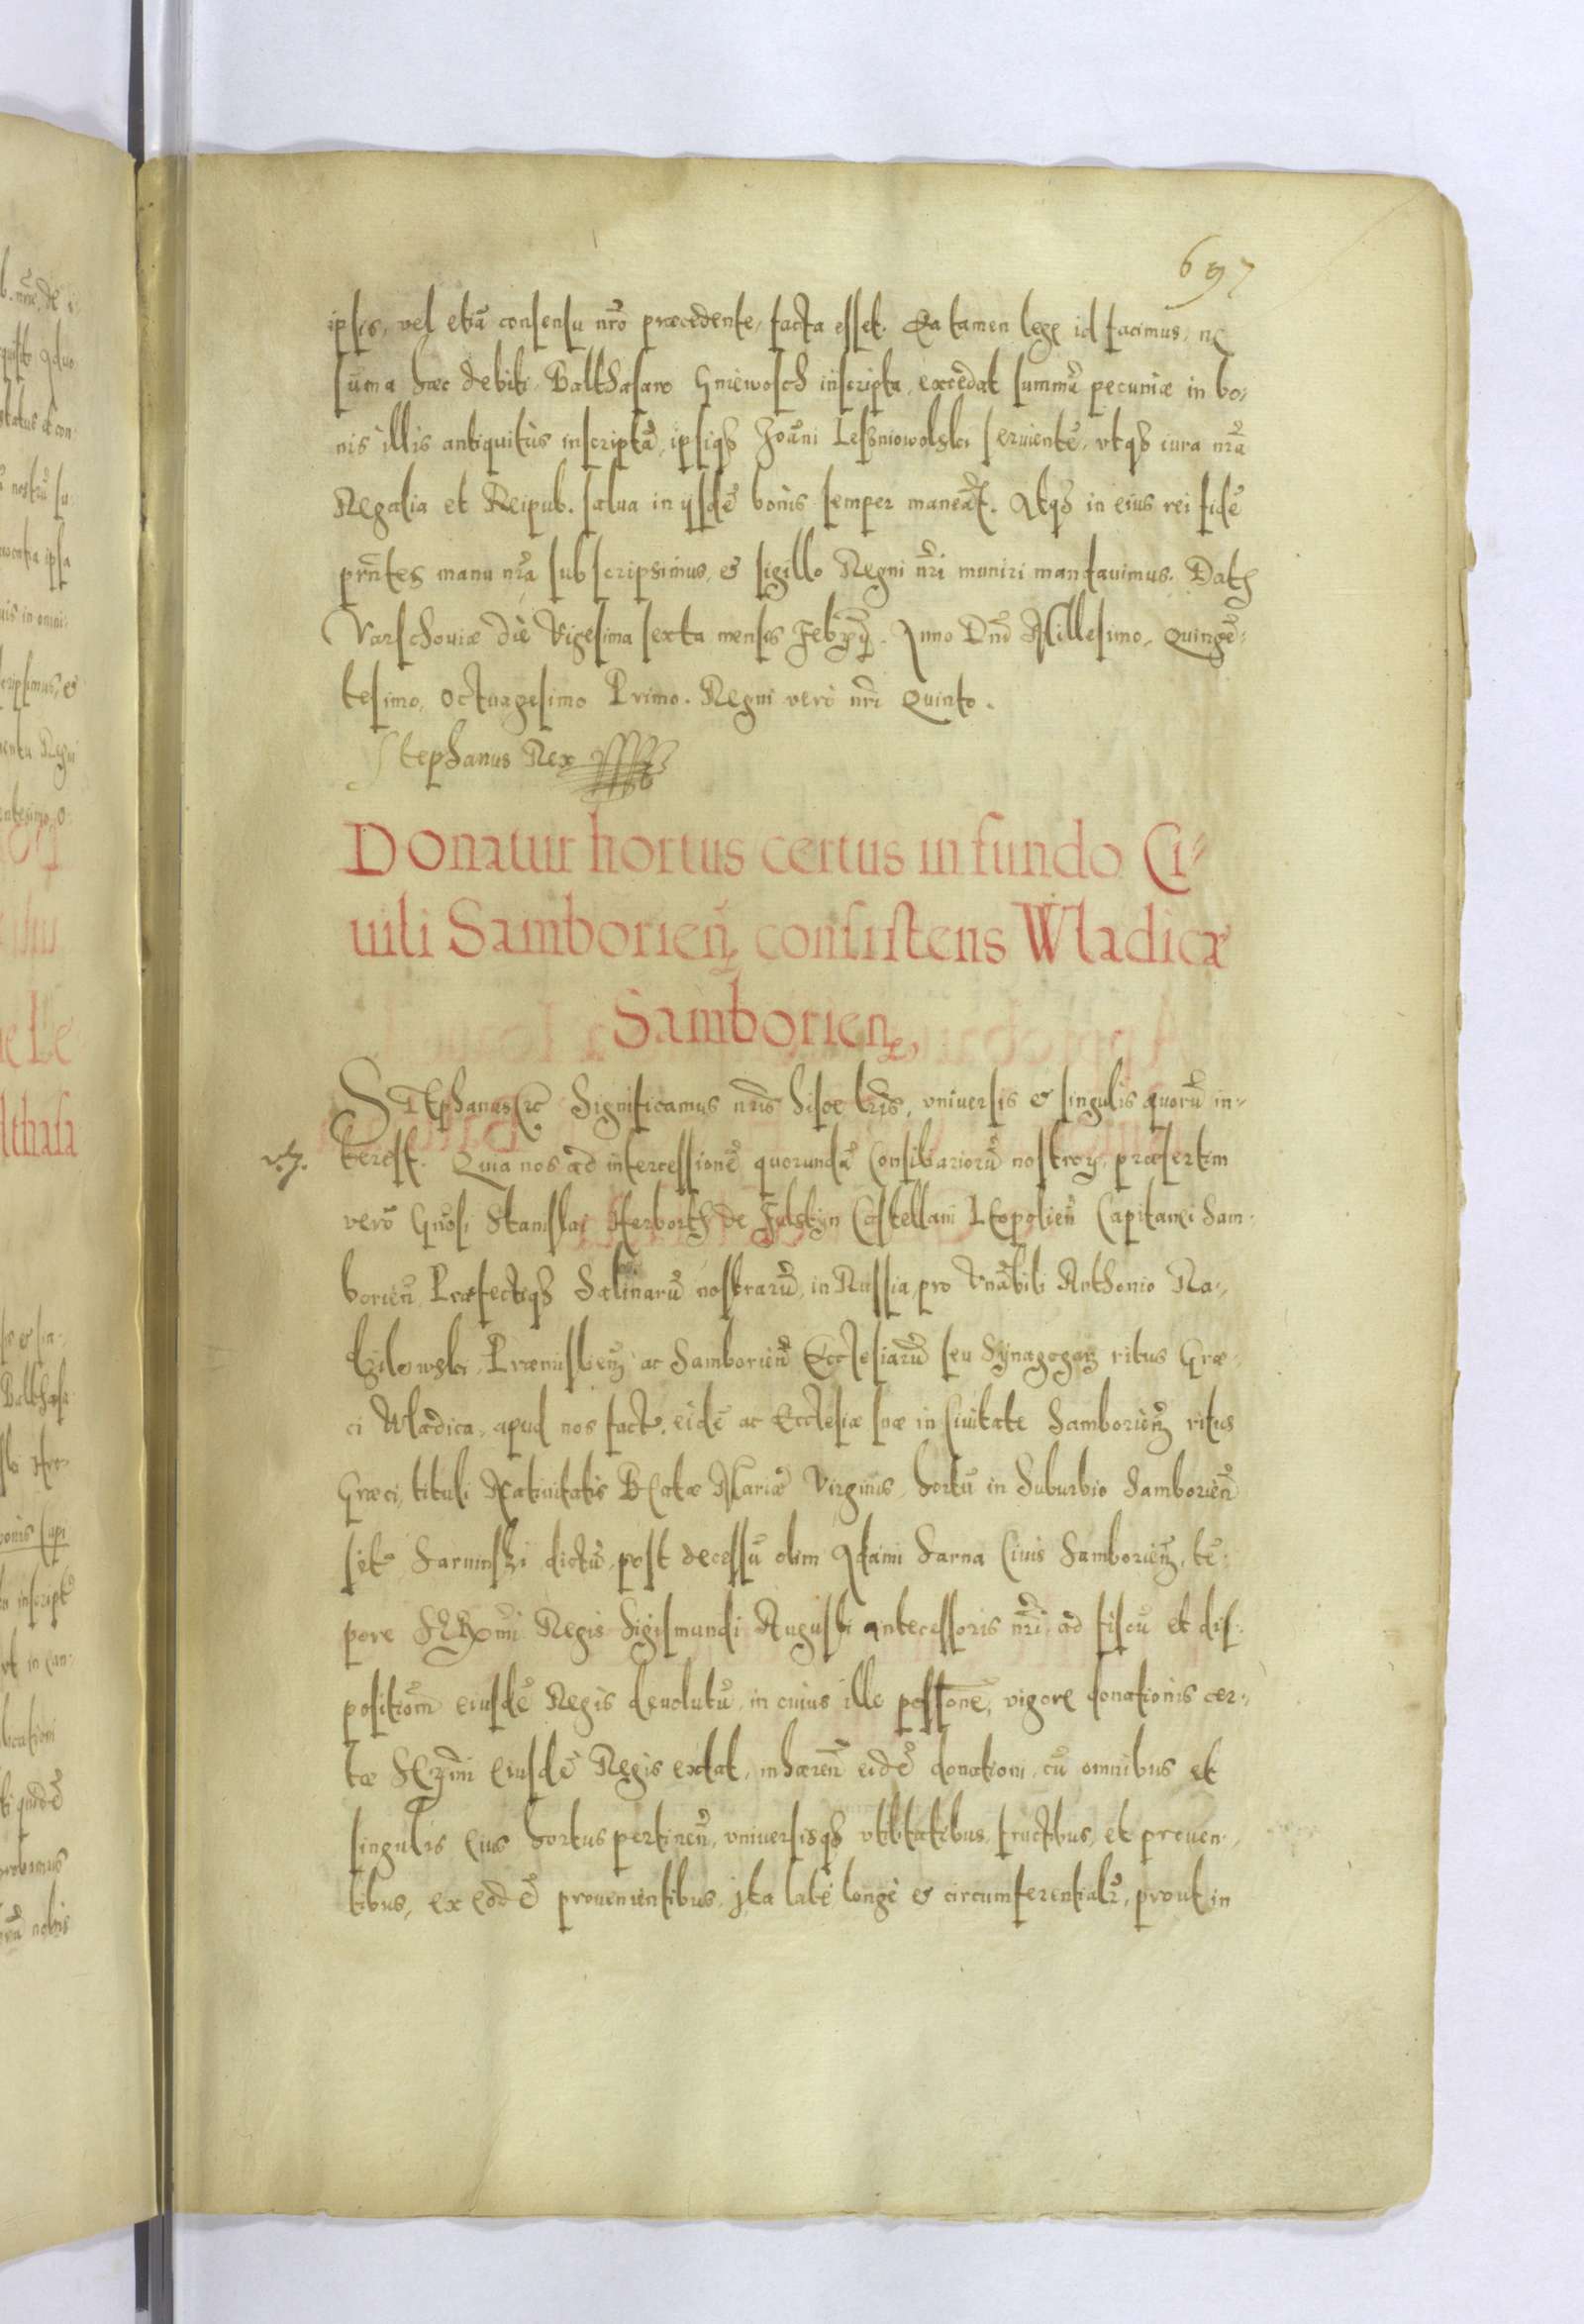 697
ipsis, vel etiã consensu nrõ præcedente, facta esset. Ea tamen lege id facimus, ne
sũma hæc debiti Balthasaro Gniewosch inscripta, excedat summã pecuniæ in bo-
nis illis antiquitùs inscriptã, ipsiqȝ Joãni Lesniowolski seruientẽ, vtqȝ iura nrã
Regalia et Reipub. salua in ysdẽ bonis semper maneãt. Atqȝ in eius rei fidẽ
prñtes manu nrã subscripsimus, & sigillo Regni nrĩ muniri mandauimus. Datȝ
Varschouiæ die Vigesima sexta mensis Feb. Anno Dnĩ Millesimo, quingẽ-
tesimo, octuagesimo Primo. Regni verò nrĩ Quinto.
Stephanus Rex
Donatur hortus certus in fundo Ci-
uili Samborieñ consistens Wladicæ
Samborien,
Stephanus etc Significamus nrĩs hisce lrĩs, vniuersis & singulis quorũ in-
terest. Quia nos ad intercessionẽ quorundã Consiliariorũ nostroꝝ, præsertim
verò Gñosi Stanislai Herborth de Fulstyn Castellani Leopolieñ Capitanei Sam-
borieñ Præfectiqȝ Salinarũ nostrarũ, in Russia, pro Vnãbili Anthonio Ra-
dzilowski, Præmislieñ ac Samborieñ Ecclesiarũ seu Synagogaꝝ ritus Græ-
ci Wladica, apud nos factã, eidẽ ac Ecclesiæ suæ in Ciuitate Samborieñ ritus
Græci, tituli Natiuitatis Beatæ Mariæ Virginis, hortũ in Suburbio Samborieñ
sitũ Sarninski dictũ, post decessũ olim Adami Sarna Ciuis Samborieñ, tẽ-
pore Smi Regis Sigismundi Augusti antecessoris nrĩ, ad fiscũ et dis-
positiõm eiusdẽ Regis deuolutũ, in cuius ille possõne, vigore donationis cer-
tæ Smi eiusdẽ Regis extat, inhæreñ eidẽ donationi, cũ omnibus et
singulis eius hortus pertineñ, vniuersisqȝ vtilitatibus, fructibus, et prouen-
tibus, ex eodẽ prouenientibus, ita latè longè & circumferentialr̃, prout in